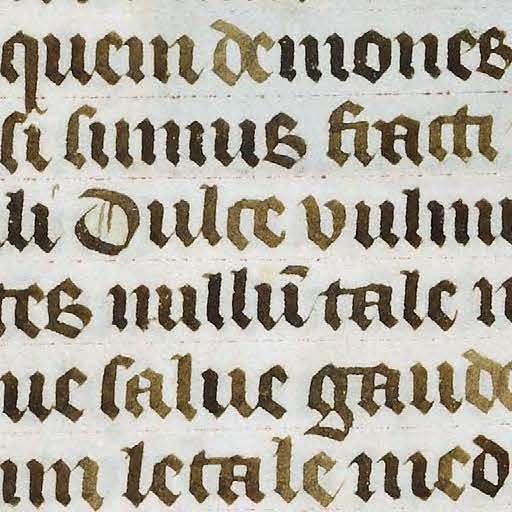 quem demones
si sumus fracti
li Dulce vuln
tes nullū tale
ue salue gaude
um letale med